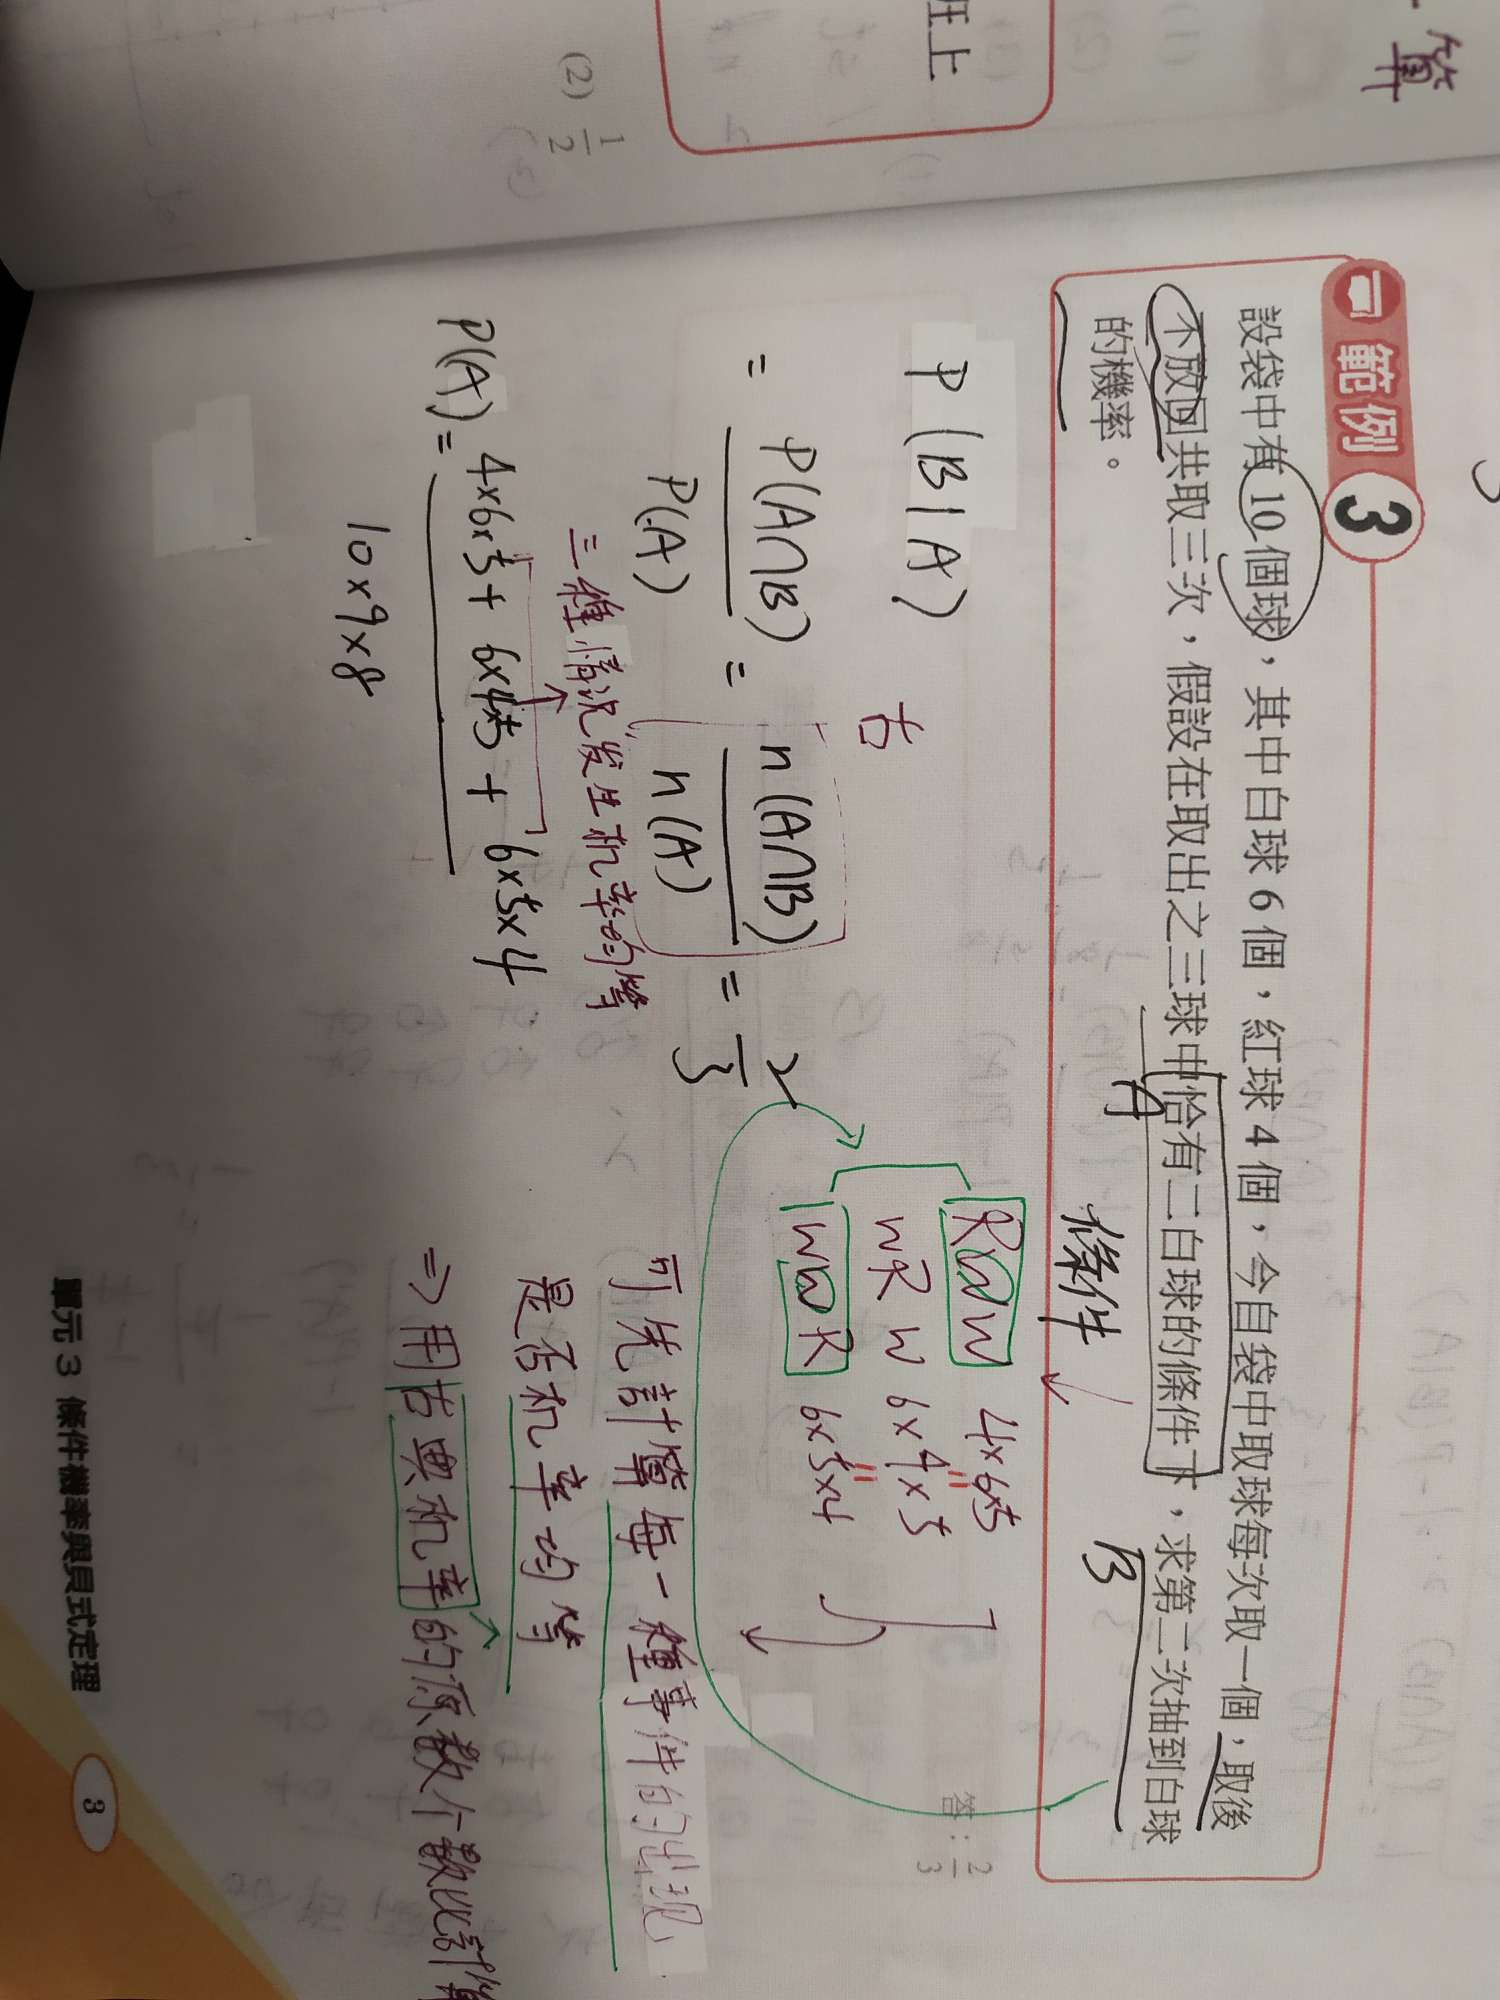 算
在上
(2) 1/2
範例 3
設袋中有 10 個球，其中白球 6 個，紅球 4 個，今自袋中取球每次取一個，取後
不放回共取三次，假設在取出之三球中恰有二白球的條件下，求第二次抽到白球
的機率。
A
條件
B
答：2/3
P(B|A)
古
= P(A∩B)/P(A) = n(A∩B)/n(A) = 2/3
RWW 4×6×5
WRW 6×4×5
WWR 6×5×4
三種情况发生机率的等
P(A) = (4×6×5 + 6×4×5 + 6×5×4)/(10×9×8)
可先計算每一種事件的出現
是否机率均等
⇒用古典机率的原数个数比計算
單元 3 條件機率與貝式定理
3